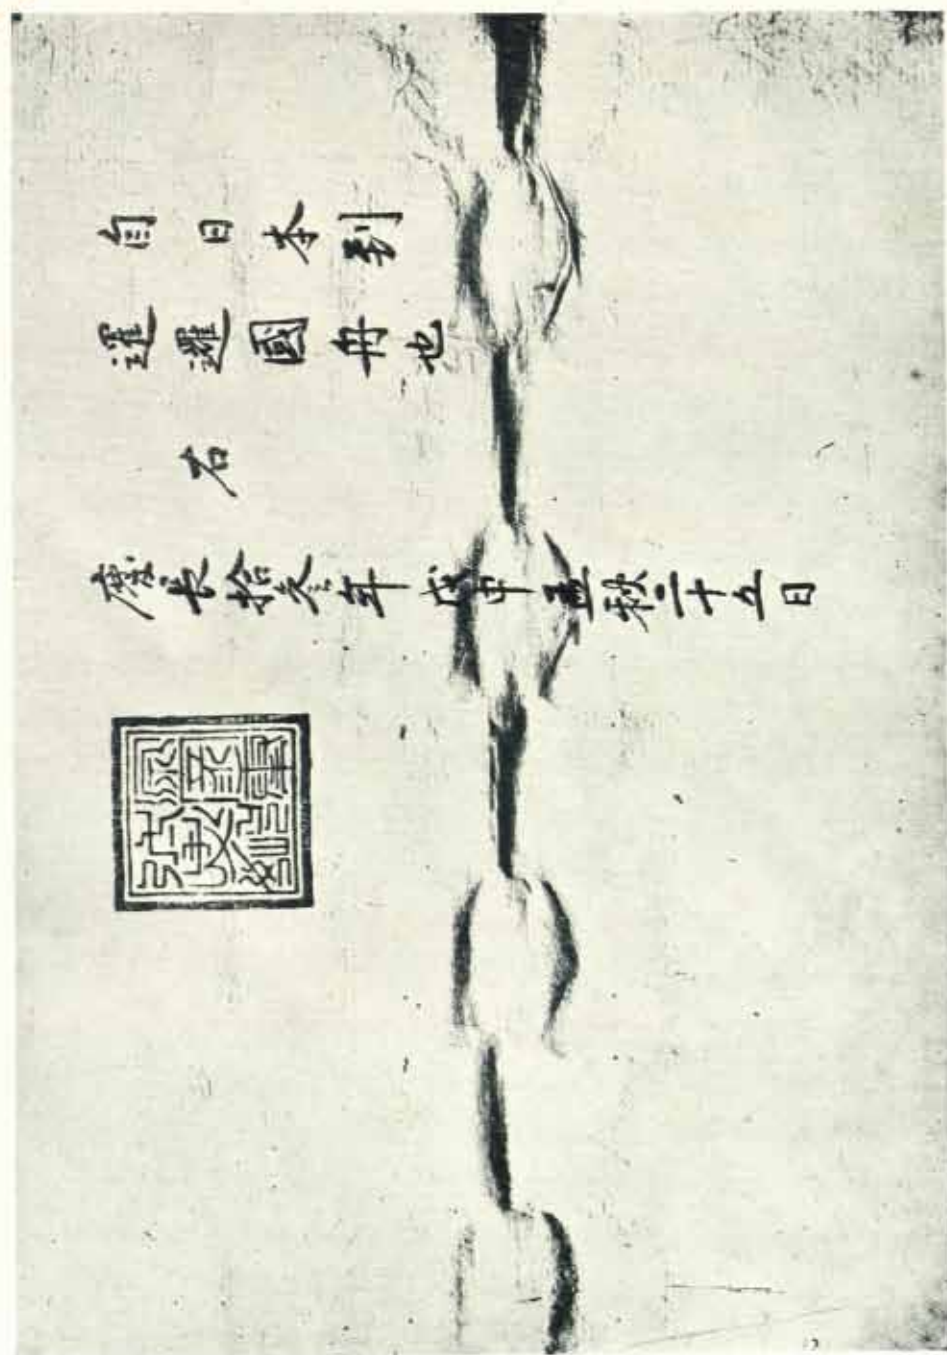 自日本到
暹邏國舟也
右
慶長拾参年戊申孟秋二十五日